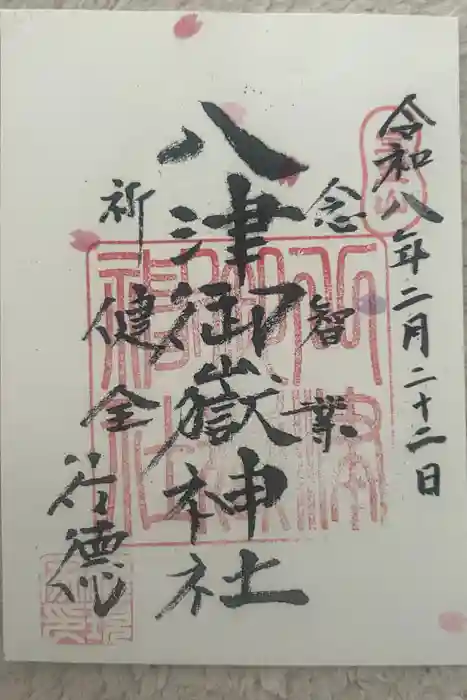 令和八年二月二十二日
念智業
八津御嶽神社
祈健全
行徳